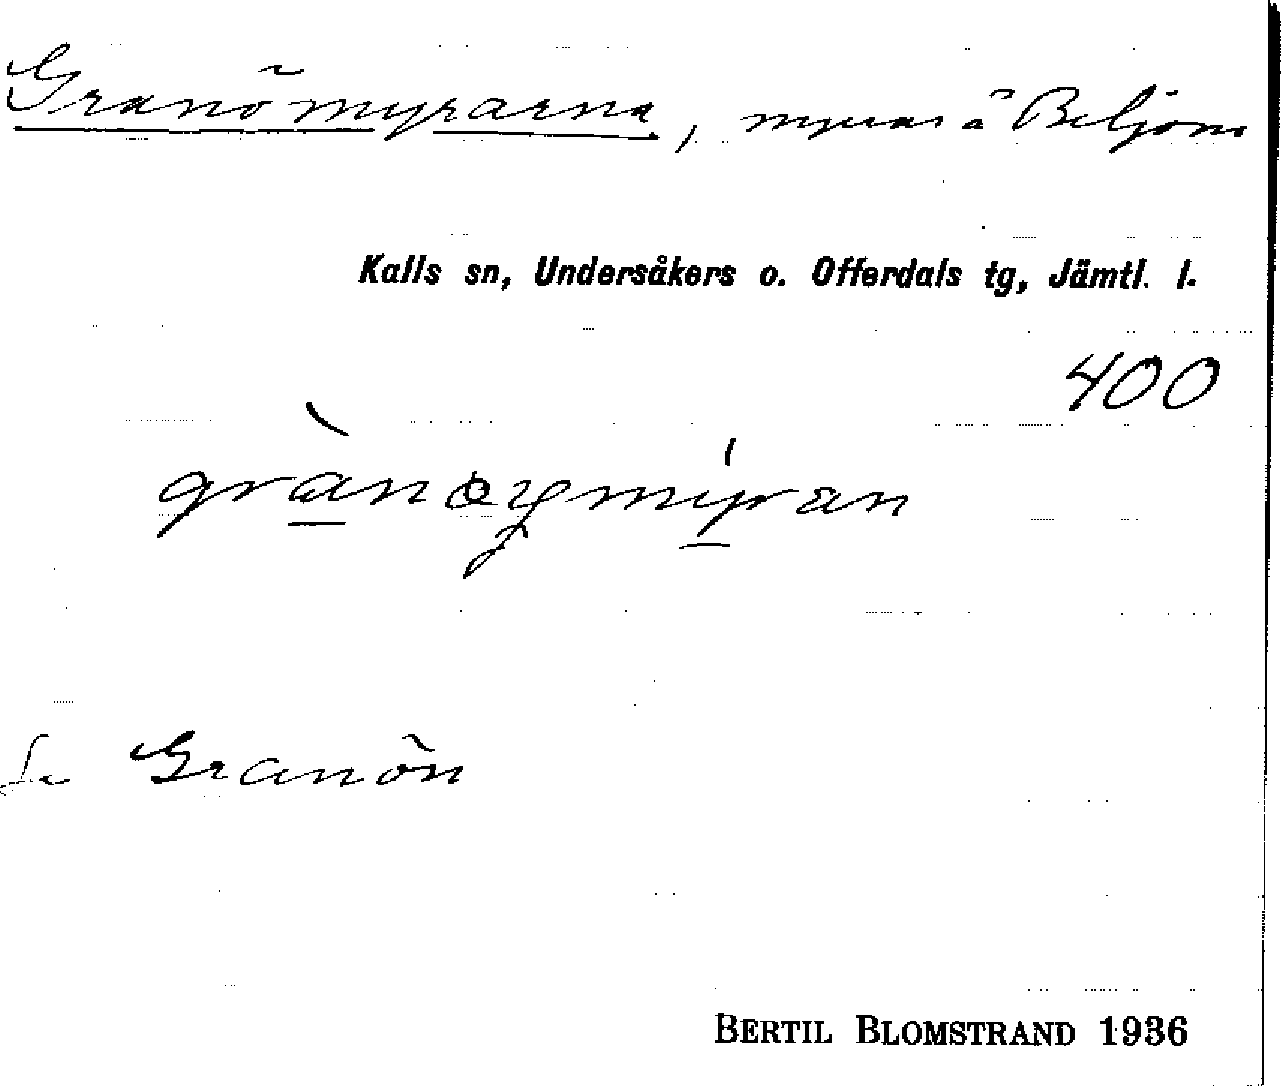 Granömyrarna, myrar å Beljom
Kalls sn, Undersåkers o. Offerdals tg, Jämtl. l.
400
Se Granön
BERTIL BLOMSTRAND 1936